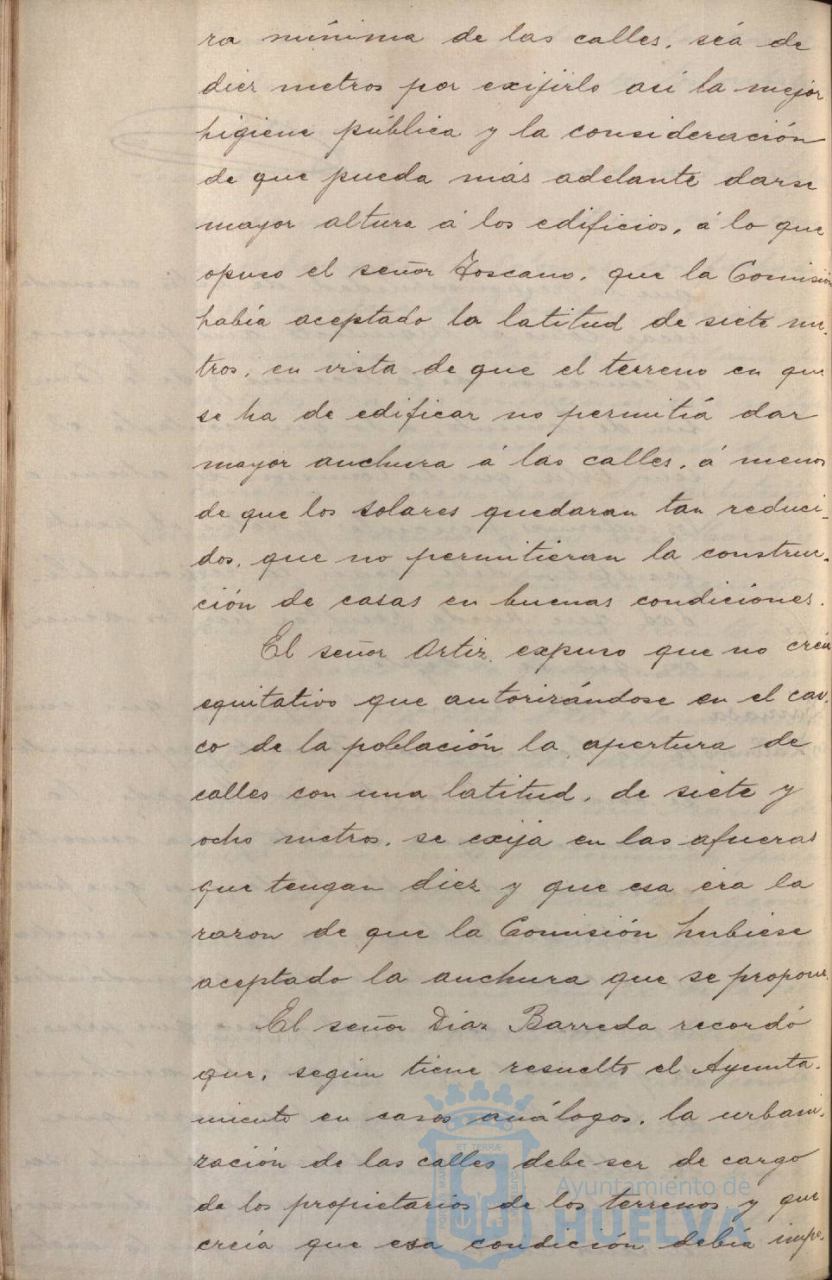 ra mínima de las calles, seá de
diez metros por exijirlo asi la mejor
higiene pública y la consideración
de que pueda más adelante darse
mayor altura á los edificios, á lo que
opuso el señor Toscano, que la Comisión
había aceptado la latitud de siete me-
tros, en vista de que el terreno en que
se ha de edificar no permitiá dar
mayor anchura á las calles, á menos
de que los solares quedaran tan reduci-
dos, que no permitieran la construc-
ción de casas en buenas condiciones.
El señor Ortiz, expuso que no creia
equitativo que autorizándose en el cas-
co de la población la apertura de
calles con una latitud, de siete y
ocho metros, se exija en las afueras
que tengan diez y que esa era la
razon de que la Comisión hubiese
aceptado la anchura que se propone.
El señor Diaz Barreda recordó
que, según tiene resuelto el Ayunta-
miento en casos análogos, la urbani-
zación de las calles debe ser de cargo
de los propietarios de los terrenos y que
creía que esa condición debía impo-
Ayuntamiento de
HUELVA